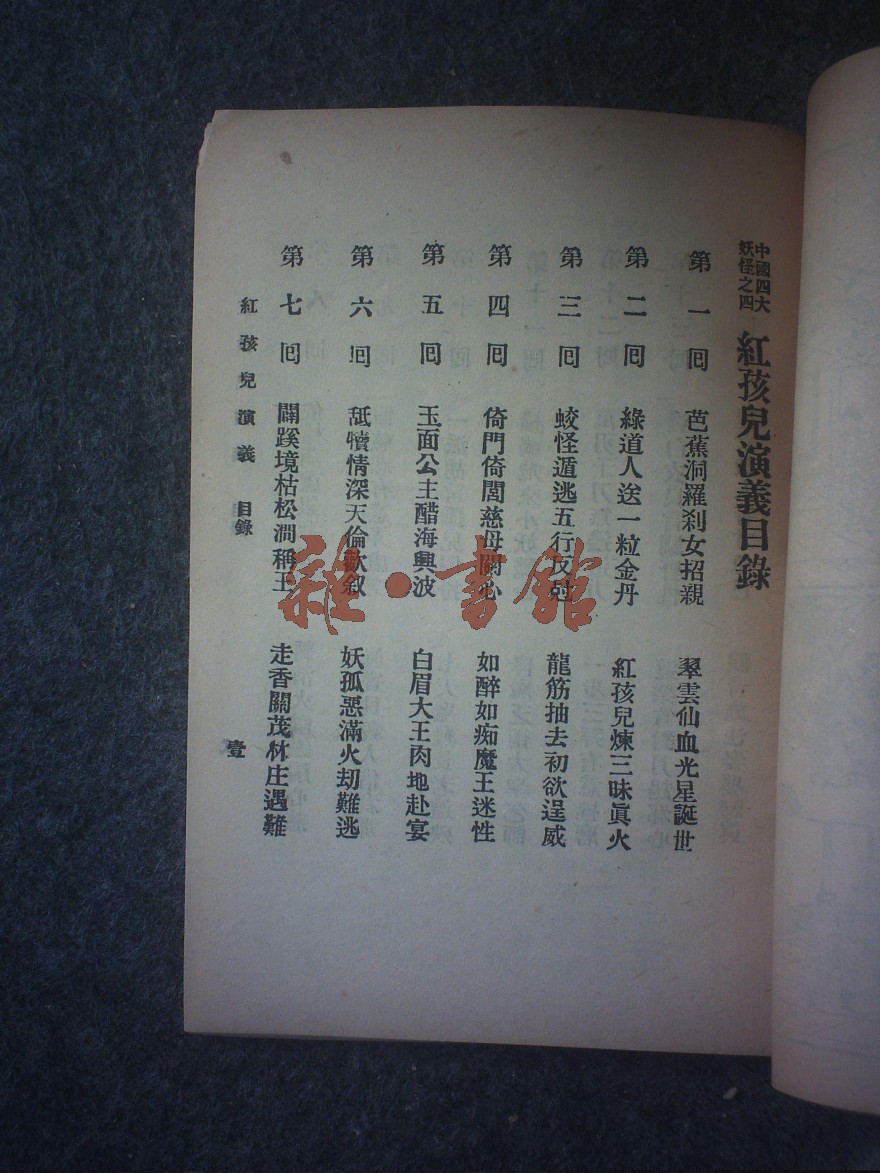 中國四大
妖怪之四
紅孩兒演義目錄
第一囘 芭蕉洞羅刹女招親 翠雲仙血光星誕世
第二囘 綠道人送一粒金丹 紅孩兒煉三昧眞火
第三囘 蛟怪遁逃五行反尅 龍筋抽去初欲逞威
第四囘 倚門倚閭慈母關心 如醉如痴魔王迷性
第五囘 玉面公主醋海興波 白眉大王肉地赴宴
第六囘 舐犢情深天倫歡叙 妖孤惡滿火刧難逃
第七囘 闢蹊境枯松澗稱王 走香關茂林庄遇難
紅孩兒演義 目錄
壹
雜·書館